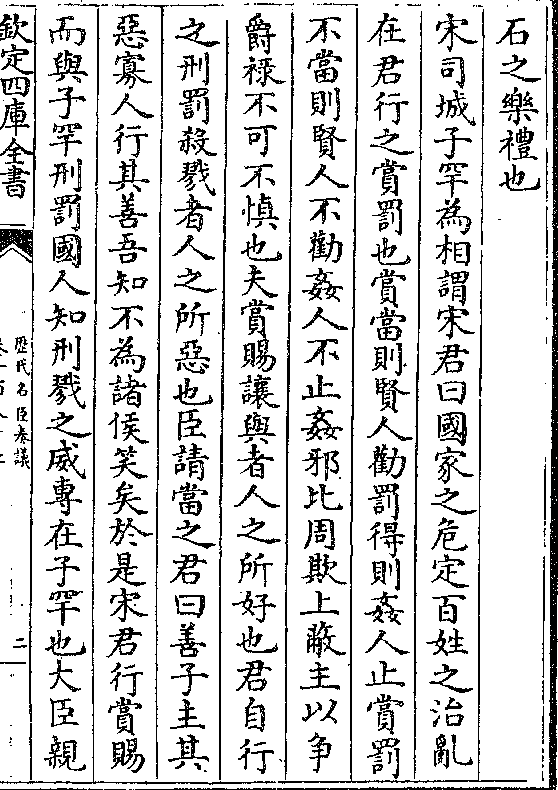 石之樂禮也
宋司城子罕為相謂宋君曰國家之危定百姓之治亂
在君行之賞罰也賞當則賢人勸罰得則姦人止賞罰
不當則賢人不勸姦人不止姦邪比周欺上蔽主以爭
爵祿不可不慎也夫賞賜讓與者人之所好也君自行
之刑罰殺戮者人之所惡也臣請當之君曰善子主其
惡寡人行其善吾知不為諸侯笑矣於是宋君行賞賜
而與子罕刑罰國人知刑戮之威專在子罕也大臣親
欽定四庫全書
歷代名臣奏議
二